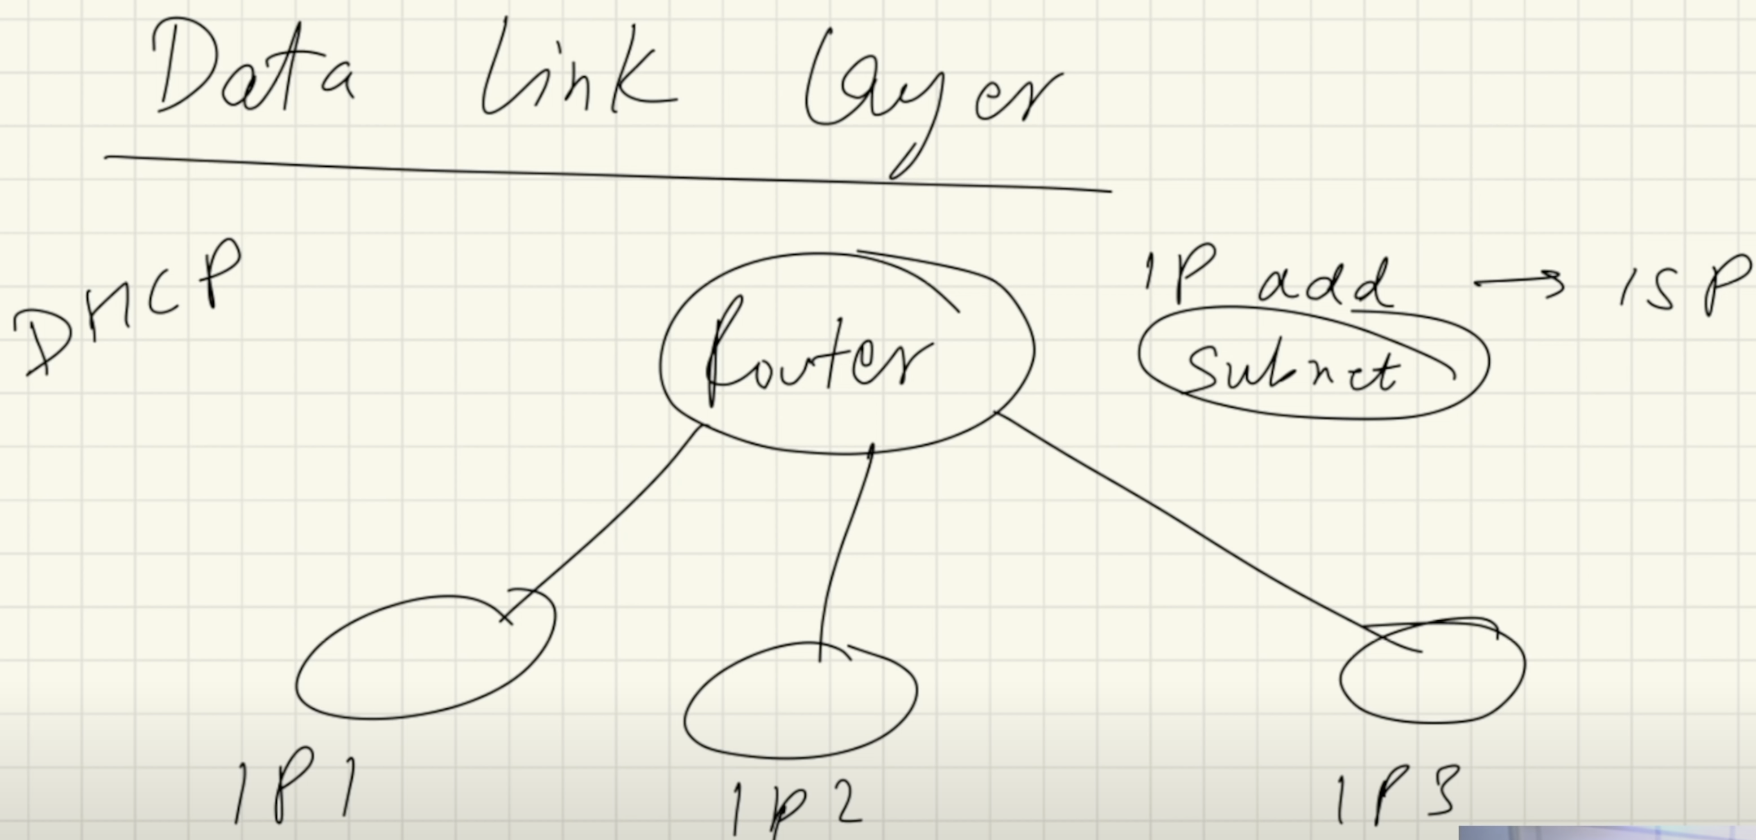 Data Link Layer
DHCP
Router
IP add → ISP
Subnet
IP1
IP2
IP3